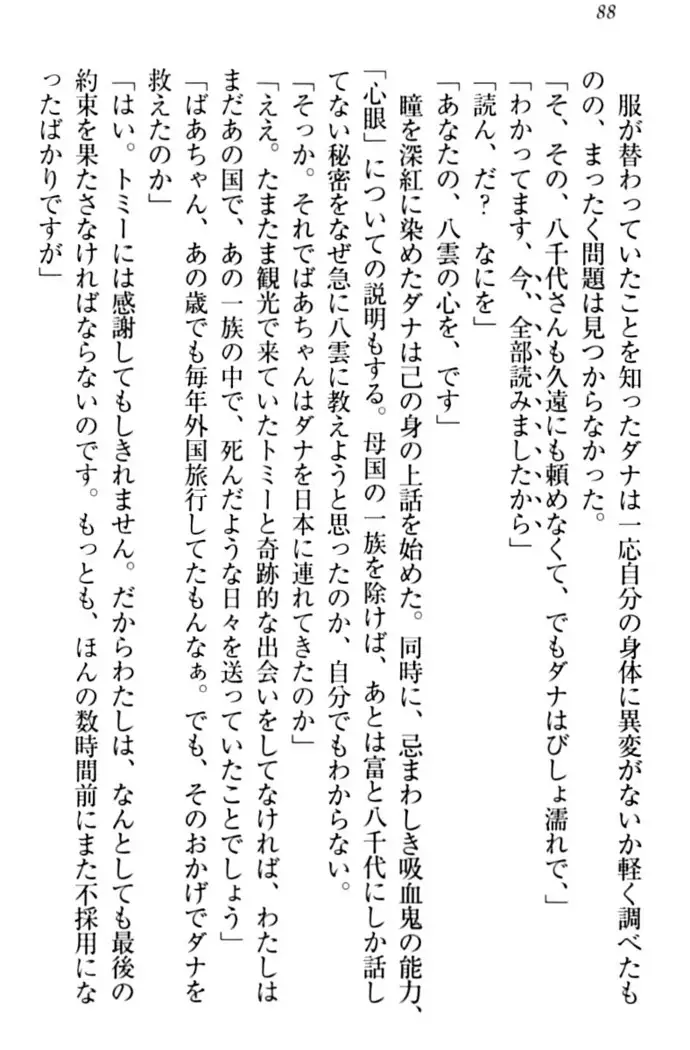 88
服が替わっていたことを知ったダナは一応自分の身体に異変がないか軽く調べたも
のの、まったく問題は見つからなかった。
「そ、その、八千代さんも久遠にも頼めなくて、でもダナはびしょ濡れで、」
「わかってます、今、全部読みましたから」
「読ん、だ？　なにを」
「あなたの、八雲の心を、です」
瞳を深紅に染めたダナは己の身の上話を始めた。同時に、忌まわしき吸血鬼の能力、
「心眼」についての説明もする。母国の一族を除けば、あとは富と八千代にしか話し
てない秘密をなぜ急に八雲に教えようと思ったのか、自分でもわからない。
「そっか。それでばあちゃんはダナを日本に連れてきたのか」
「ええ。たまたま観光で来ていたトミーと奇跡的な出会いをしてなければ、わたしは
まだあの国で、あの一族の中で、死んだような日々を送っていたことでしょう」
「ばあちゃん、あの歳でも毎年外国旅行してたもんなぁ。でも、そのおかげでダナを
救えたのか」
「はい。トミーには感謝してもしきれません。だからわたしは、なんとしても最後の
約束を果たさなければならないのです。もっとも、ほんの数時間前にまた不採用にな
ったばかりですが」